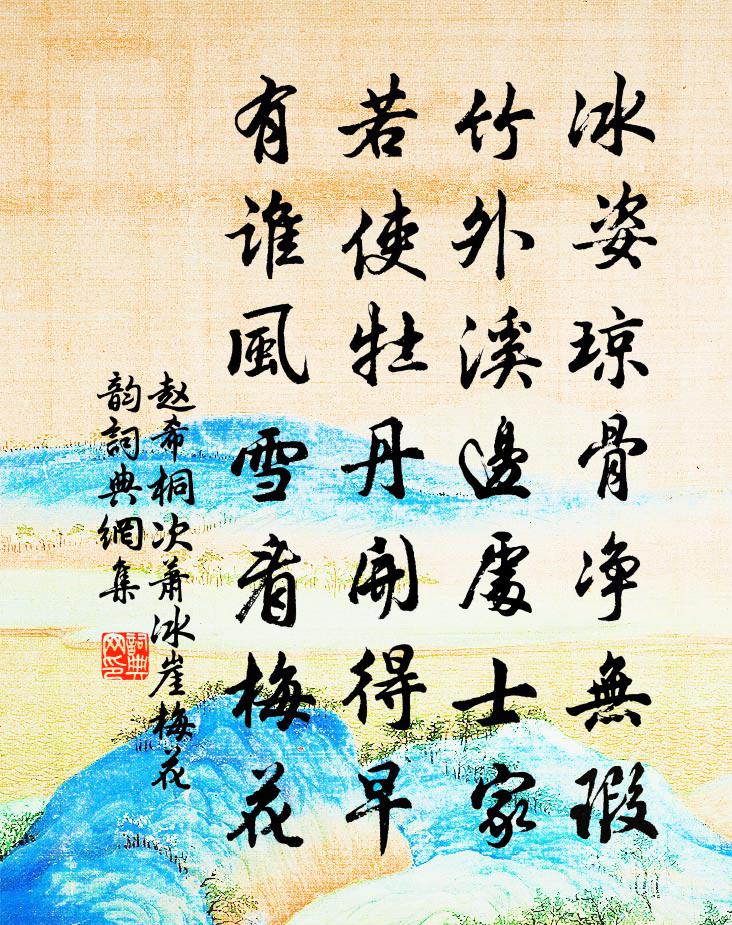 冰姿琼骨净無瑕
竹外溪邊處士家
若使牡丹開得早
有谁風雪看梅花
赵希桐次萧冰崖梅花
韵詞典網集
詞典
网印